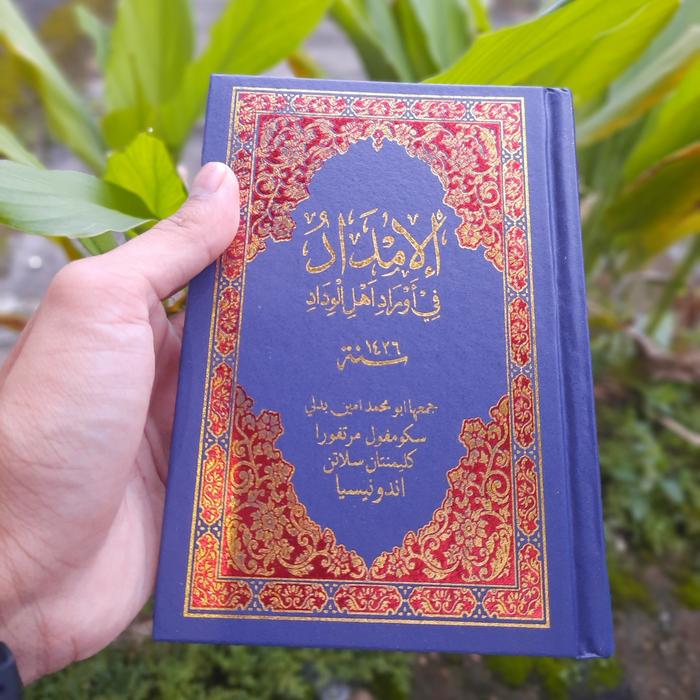 الإِمْدَادُ
فِيْ أَوْرَادِ اَهْلِ الْوِدَادِ
سنة ١٤٢٦
جمعها ابو محمد امين بدلي
سكومفول مرتفورا
كليمنتان سلاتن
اندونيسيا